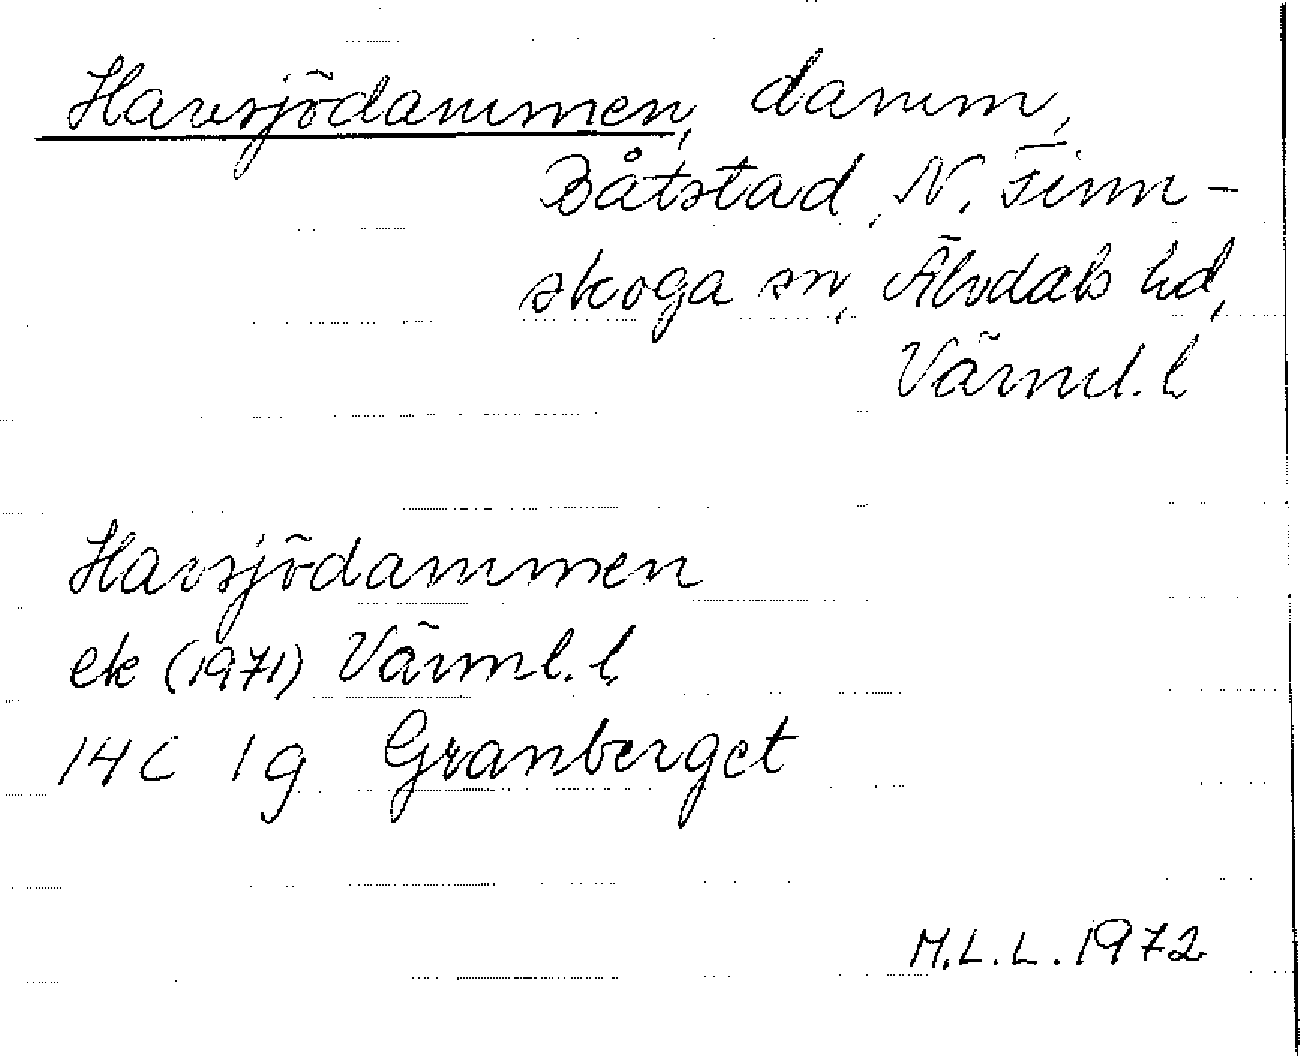 Havsjödammen, damm,
Båtstad, N. Finn-
skoga sn, Älvdals hd,
Värml. l
Havsjödammen
ek (1971) Värml. l.
14C 1g Granberget
M.L.L. 1972